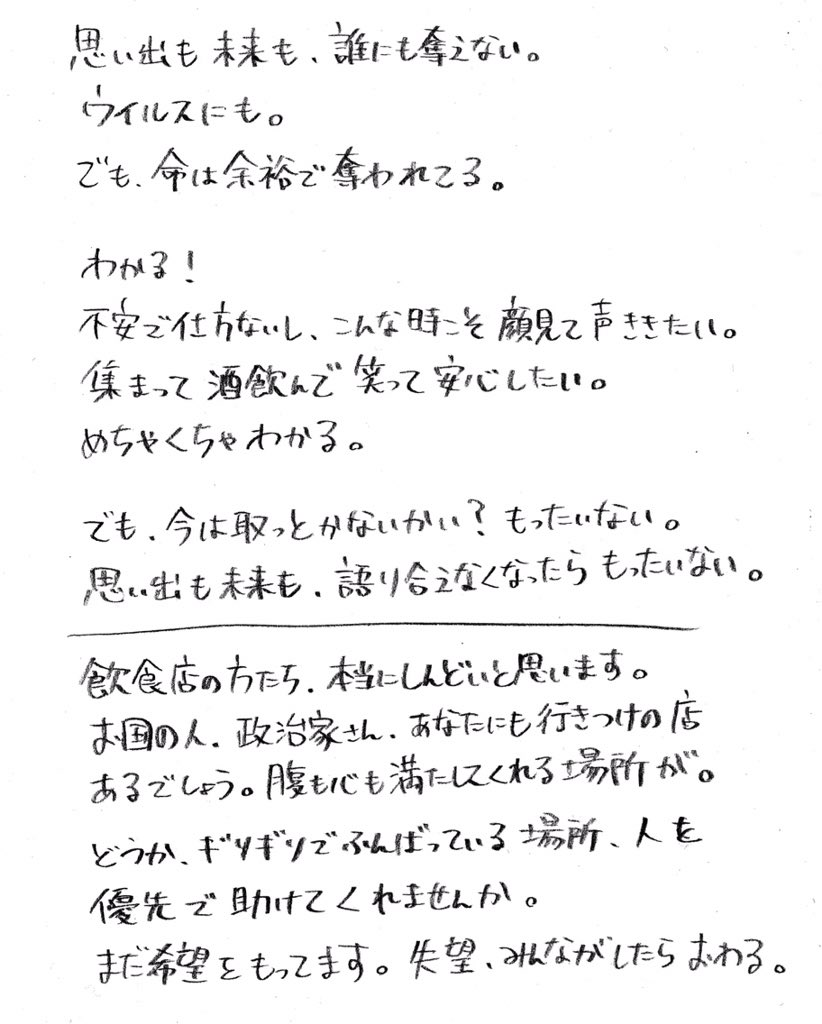 思い出も未来も、誰にも奪えない。
ウイルスにも。
でも、命は余裕で奪われてる。
わかる！
不安で仕方ないし、こんな時こそ顔見て声ききたい。
集まって酒飲んで笑って安心したい。
めちゃくちゃわかる。
でも、今は取っとかないかい？もったいない。
思い出も未来も、語り合えなくなったらもったいない。
飲食店の方たち、本当にしんどいと思います。
お国の人、政治家さん、あなたにも行きつけの店
あるでしょう。腹も心も満たしてくれる場所が。
どうか、ギリギリでふんばっている場所、人を
優先で助けてくれませんか。
まだ希望をもってます。失望、みんながしたらおわる。